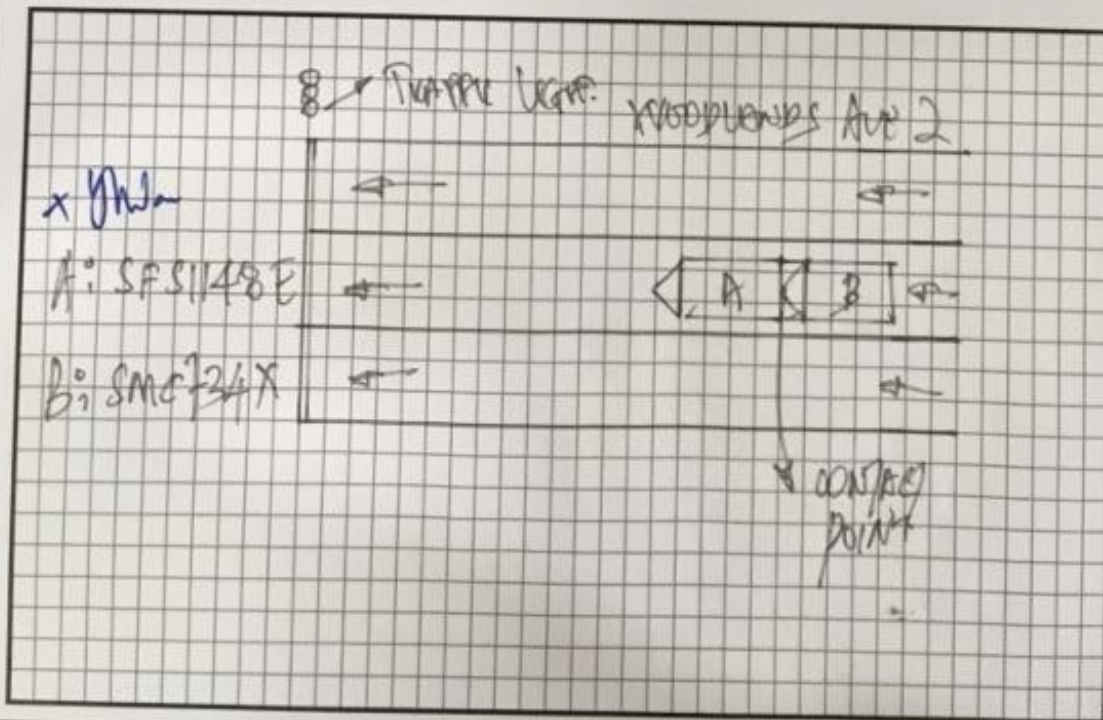 TRAFFIC LIGHT.
WOODLANDS AVE 2
x
A: SFS1148E
B: SMC734X
A B
CONTACT
POINT